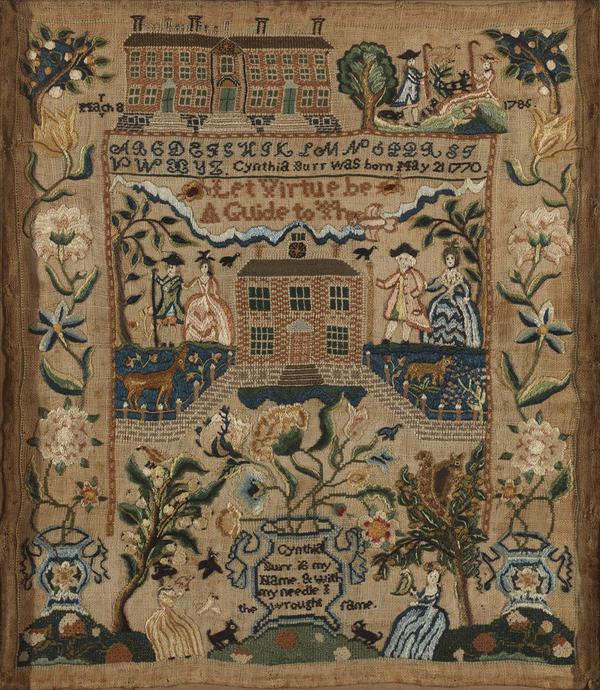 March 8 1785.
A B C D E F G H I K L M N O P Q R S T
V W X Y Z Cynthia Burr was born May 21 1770.
Let Virtue be
A Guide to The
Cynthia
Burr is my
Name & with
my needle I
the wrought fame.